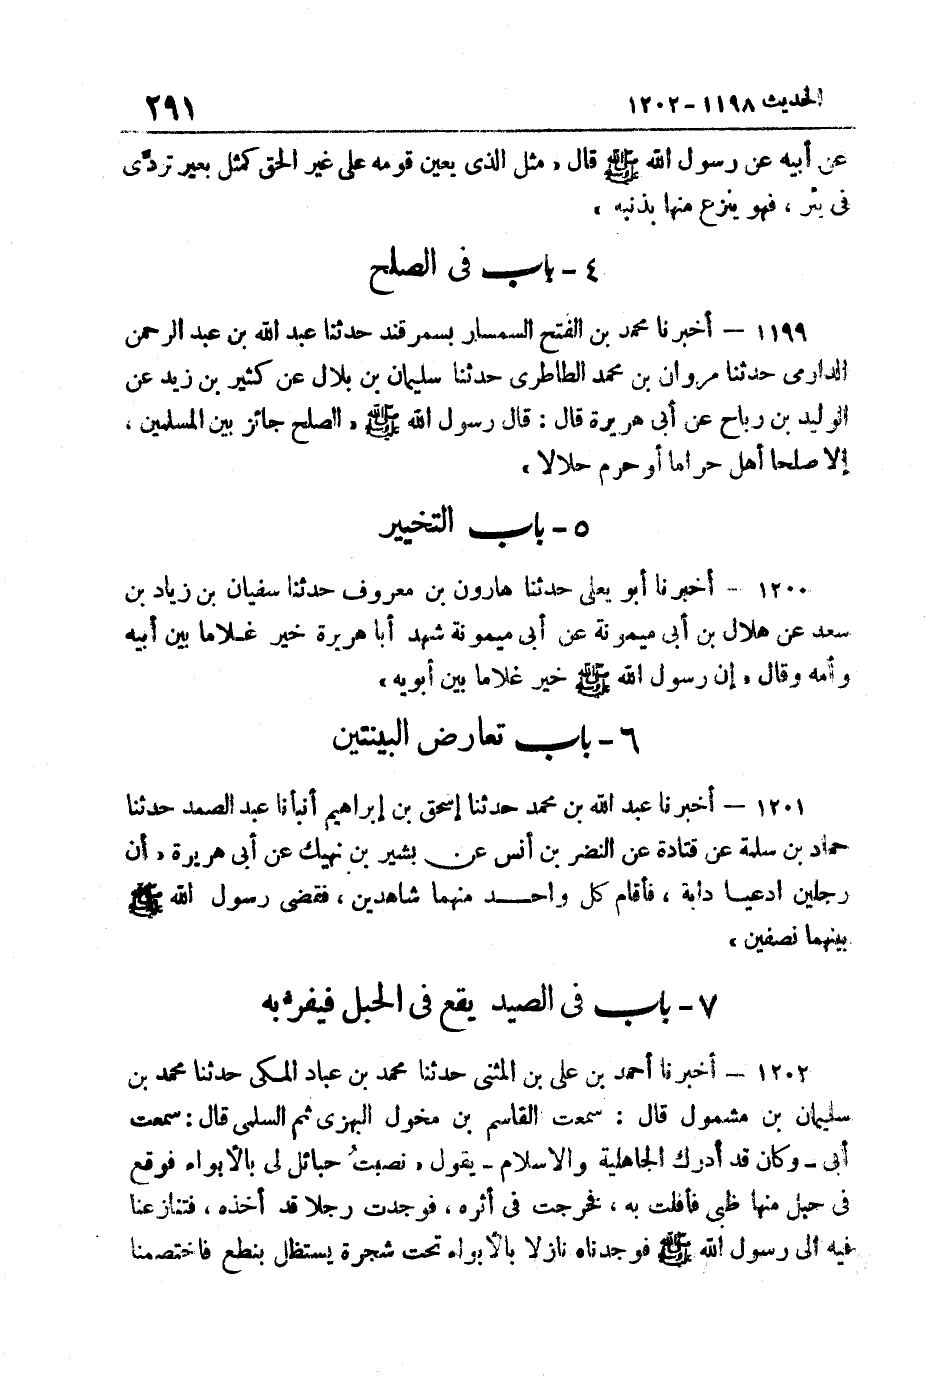 الحديث ١١٩٨-١٢٠٢ ٢٩١
عن أبيه عن رسول الله ﷺ قال « مثل الذى يعين قومه على غير الحق كمثل بعير تردّى
فى بئر ، فهو ينزع منها بذنبه »
٤ - باب فى الصلح
١١٩٩ - أخبرنا محمد بن الفتح السمسار بسمرقند حدثنا عبد الله بن عبد الرحمن
الدارمى حدثنا مروان بن محمد الطاطرى حدثنا سليمان بن بلال عن كثير بن زيد عن
الوليد بن رباح عن أبى هريرة قال : قال رسول الله ﷺ « الصلح جائز بين المسلمين ،
إلا صلحا أهل حراما أو حرم حلالا »
٥ - باب التخيير
١٢٠٠ - أخبرنا أبو يعلى حدثنا هارون بن معروف حدثنا سفيان بن زياد بن
سعد عن هلال بن أبى ميمونة عن أبى ميمونة شهد أبا هريرة خير غلاما بين أبيه
وأمه وقال « إن رسول الله ﷺ خير غلاما بين أبويه »
٦ - باب تعارض البينتين
١٢٠١ - أخبرنا عبد الله بن محمد حدثنا إسحق بن إبراهيم أنبأنا عبد الصمد حدثنا
حماد بن سلمة عن قتادة عن النضر بن أنس عن بشير بن نهيك عن أبى هريرة « أن
رجلين ادعيا دابة ، فأقام كل واحد منهما شاهدين ، فقضى رسول الله ﷺ
بينهما نصفين »
٧ - باب فى الصيد يقع فى الحبل فيفر به
١٢٠٢ - أخبرنا أحمد بن على بن المثنى حدثنا محمد بن عباد المكى حدثنا محمد بن
سليمان بن مشمول قال : سمعت القاسم بن مخول البهزى ثم السلمى قال : سمعت
أبى - وكان قد أدرك الجاهلية والاسلام - يقول « نصبتُ حبائل لى بالأبواء فوقع
فى حبل منها ظبى فأفلت به ، فخرجت فى أثره ، فوجدت رجلا قد أخذه ، فتنازعنا
فيه الى رسول الله ﷺ فوجدناه نازلا بالأبواء تحت شجرة يستظل بنطع فاختصمنا